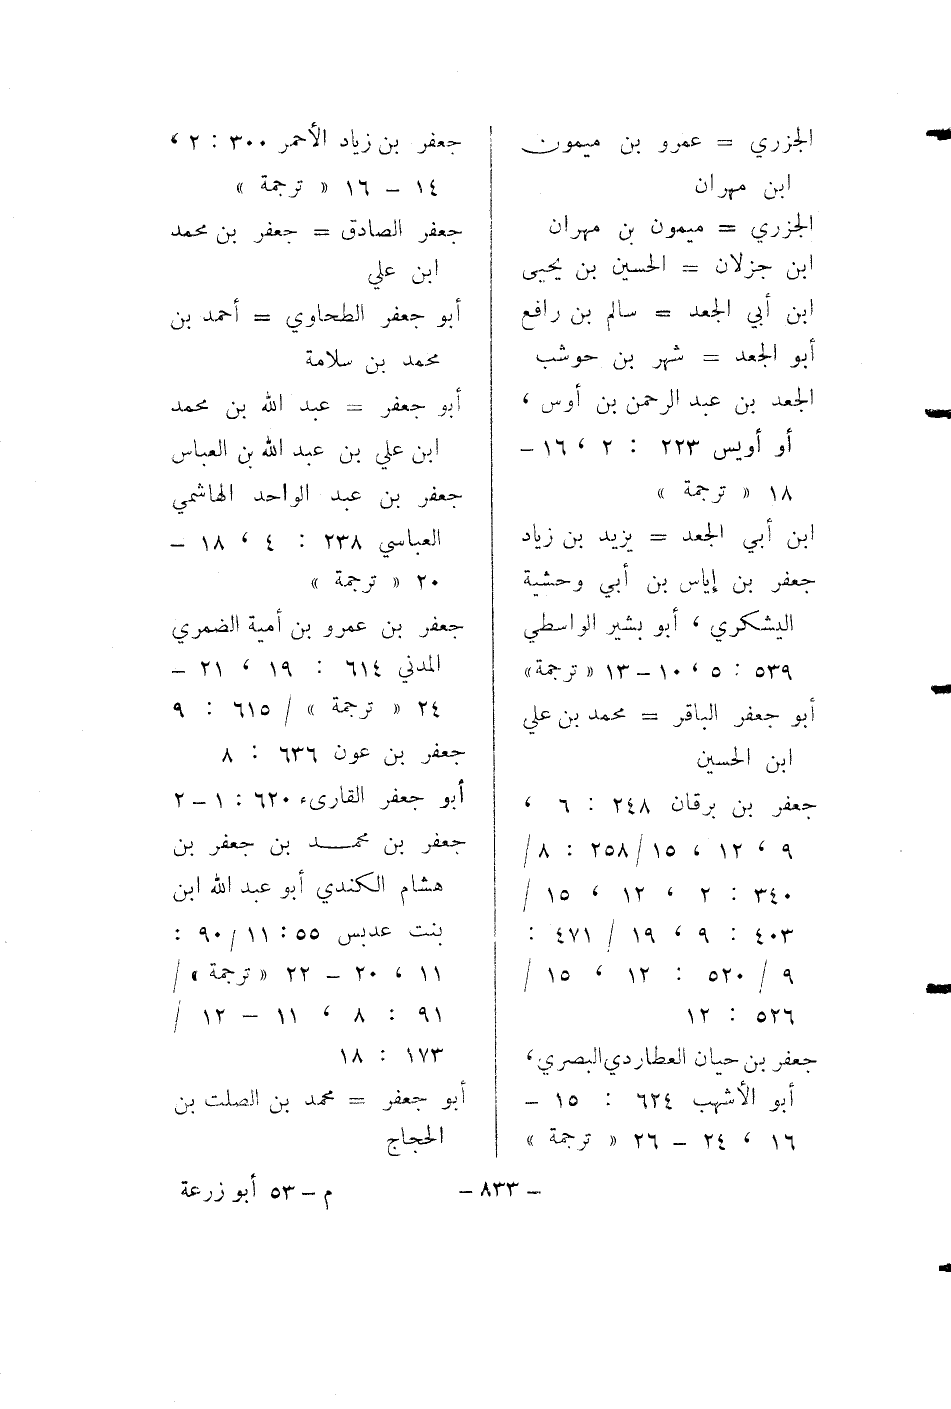 الجزري = عمرو بن ميمون
ابن مهران
الجزري = ميمون بن مهران
ابن جزلان = الحسين بن يحيى
ابن أبي الجعد = سالم بن رافع
أبو الجعد = شهر بن حوشب
الجعد بن عبد الرحمن بن أوس ،
أو أويس ٢٢٣ : ٢ ، ١٦ –
١٨ « ترجمة »
ابن أبي الجعد = يزيد بن زياد
جعفر بن إياس بن أبي وحشية
اليشكري ، أبو بشير الواسطي
٥٣٩ : ٥ ، ١٠ – ١٣ « ترجمة »
أبو جعفر الباقر = محمد بن علي
ابن الحسين
جعفر بن برقان ٢٤٨ : ٦ ،
٩ ، ١٢ ، ١٥ / ٢٥٨ : ٨ /
٣٤٠ : ٢ ، ١٢ ، ١٥ /
٤٠٣ : ٩ ، ١٩ / ٤٧١ :
٩ / ٥٢٠ : ١٢ ، ١٥ /
٥٢٦ : ١٢
جعفر بن حيان العطاردي البصري ،
أبو الأشهب ٦٢٤ : ١٥ –
١٦ ، ٢٤ – ٢٦ « ترجمة »
جعفر بن زياد الأحمر ٣٠٠ : ٢ ،
١٤ – ١٦ « ترجمة »
جعفر الصادق = جعفر بن محمد
ابن علي
أبو جعفر الطحاوي = أحمد بن
محمد بن سلامة
أبو جعفر = عبد الله بن محمد
ابن علي بن عبد الله بن العباس
جعفر بن عبد الواحد الهاشمي
العباسي ٢٣٨ : ٤ ، ١٨ –
٢٠ « ترجمة »
جعفر بن عمرو بن أمية الضمري
المدني ٦١٤ : ١٩ ، ٢١ –
٢٤ « ترجمة » / ٦١٥ : ٩
جعفر بن عون ٦٣٦ : ٨
أبو جعفر القارىء ٦٢٠ : ١ – ٢
جعفر بن محمد بن جعفر بن
هشام الكندي أبو عبد الله ابن
بنت عدبس ٥٥ : ١١ / ٩٠ :
١١ ، ٢٠ – ٢٢ « ترجمة » /
٩١ : ٨ ، ١١ – ١٢ /
١٧٣ : ١٨
أبو جعفر = محمد بن الصلت بن
الحجاج
– ٨٣٣ –
م – ٥٣ أبو زرعة